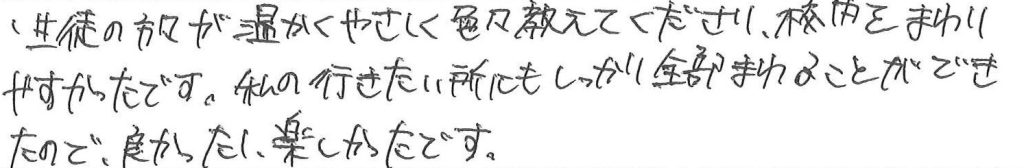 ・生徒の方々が温かくやさしく色々教えてくださり、校内をまわり
やすかったです。私の行きたい所にもしっかり全部まわることができ
たので、良かったし、楽しかったです。